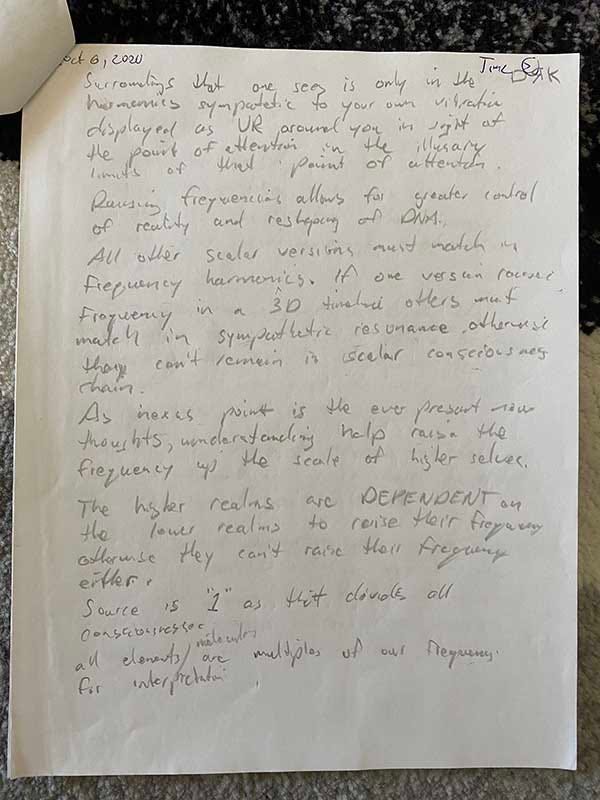 Oct 6, 2020
Time
Surroundings that one sees is only in the
harmonics sympatetic to your own vibration
displayed as VR around you in sight of
the point of attention in the illusary
limits of that point of attention.
Raising frequencies allows for greater control
of reality and reshaping of DNA.
All other scalar versions must match in
frequency harmonics. If one version
frequency in a 3D others must
match in sympathetic resonance otherwise
they can't remain in scalar consciousness
chain.
As nexus point is the ever present now
thoughts, understanding help raise the
frequency up the scale of higher selves.
The higher realms are DEPENDENT on
the lower realms to raise their frequency
otherwise they can't raise their frequency
either.
Source is "1" as that divides all
consciousnesses
molecules
all elements/ are multiples of our frequency.
for interpretation.